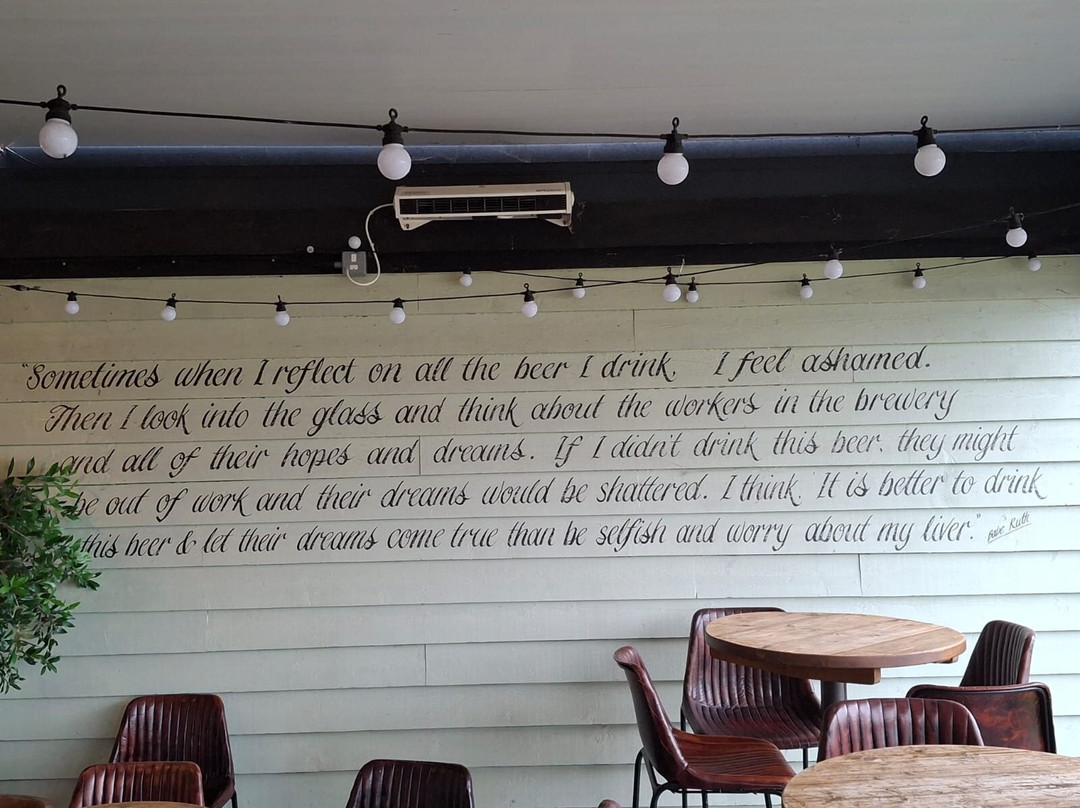 "Sometimes when I reflect on all the beer I drink, I feel ashamed.
Then I look into the glass and think about the workers in the brewery
and all of their hopes and dreams. If I didn't drink this beer, they might
be out of work and their dreams would be shattered. I think, It is better to drink
this beer & let their dreams come true than be selfish and worry about my liver."
Babe Ruth